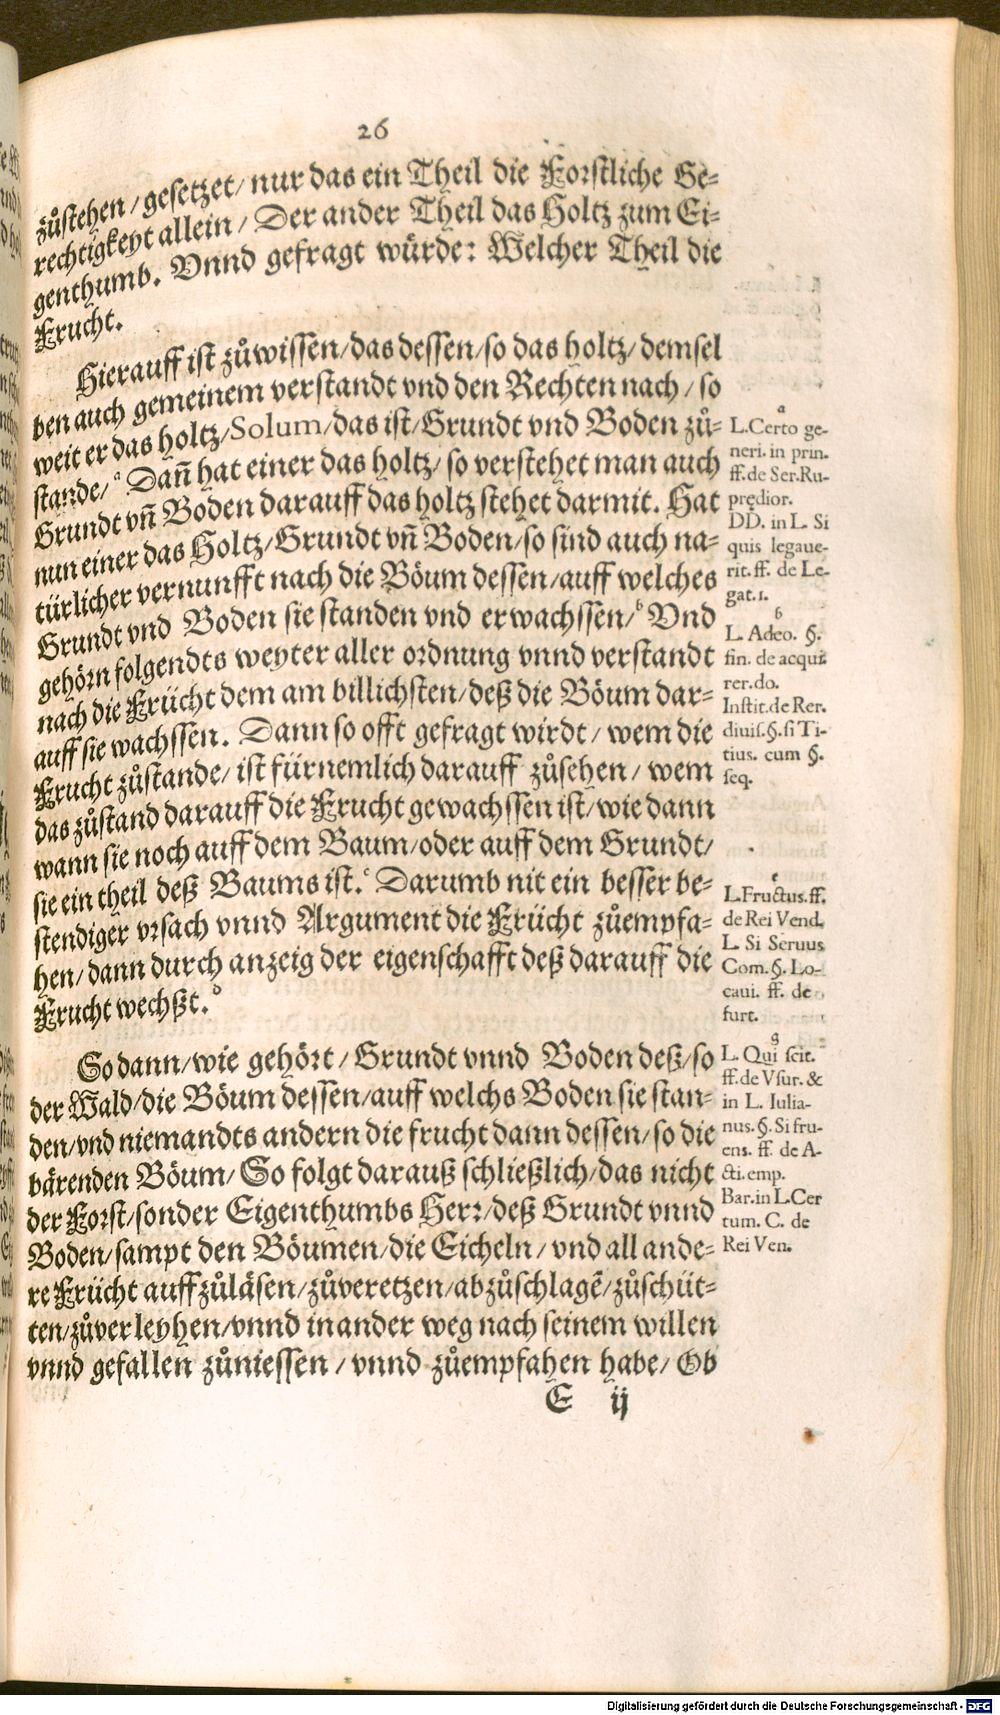 26
zůstehen/ gesetzet/ nur das ein Theil die Forstliche Ge⸗
rechtigkeyt allein/ Der ander Theil das Holtz zum Ei⸗
genthumb. Vnnd gefragt würde: Welcher Theil die
Frucht.
Hierauff ist zůwissen/ das dessen/ so das holtz/ demsel
ben auch gemeinem verstandt vnd den Rechten nach/ so
weit er das holtz/ Solum/ das ist/ Grundt vnd Boden zů⸗
stande/ᵃ Dañ hat einer das holtz/ so verstehet man auch
Grundt vñ Boden darauff das holtz stehet darmit. Hat
nun einer das Holtz/ Grundt vñ Boden/ so sind auch na⸗
türlicher vernunfft nach die Böum dessen/ auff welches
Grundt vnd Boden sie standen vnd erwachssen/ᵇ Vnd
gehörn folgendts weyter aller ordnung vnnd verstandt
nach die Frücht dem am billichsten/ deß die Böum dar⸗
auff sie wachssen. Dann so offt gefragt wirdt/ wem die
Frucht zůstande/ ist fürnemlich darauff zůsehen/ wem
das zůstand darauff die Frucht gewachssen ist/ wie dann
wann sie noch auff dem Baum/ oder auff dem Grundt/
sie ein theil deß Baums ist.ᶜ Darumb nit ein besser be⸗
stendiger vrsach vnnd Argument die Frücht zůempfa⸗
hen/ dann durch anzeig der eigenschafft deß darauff die
Frucht wechßt.ᵈ
So dann/ wie gehört/ Grundt vnnd Boden deß/ so
der Wald/ die Böum dessen/ auff welchs Boden sie stan⸗
den/ vnd niemandts andern die frucht dann dessen/ so die
bärenden Böum/ So folgt darauß schließlich/ das nicht
der Forst/ sonder Eigenthumbs Herr/ deß Grundt vnnd
Boden/ sampt den Böumen/ die Eicheln/ vnd all ande⸗
re Frücht auffzůläsen/ zůveretzen/ abzůschlagẽ/ zůschüt⸗
ten/ zůverleyhen/ vnnd in ander weg nach seinem willen
vnnd gefallen zůniessen/ vnnd zůempfahen habe/ Ob
E ij
a
L. Certo ge-
neri. in prin.
ff. de Ser. Ru-
prędior.
DD. in L. Si
quis legaue-
rit. ff. de Le-
gat. 1.
b
L. Adeo. §.
fin. de acqui
rer. do.
Instit. de Rer.
diuis. §. si Ti-
tius. cum §.
seq.
c
L. Fructus. ff.
de Rei Vend.
L. Si Seruus
Com. §. Lo-
caui. ff. de
furt.
d
L. Qui scit.
ff. de Vsur. &
in L. Iulia-
nus. §. Si fru-
ens. ff. de A-
cti. emp.
Bar. in L. Cer
tum. C. de
Rei Ven.
Digitalisierung gefördert durch die Deutsche Forschungsgemeinschaft - DFG